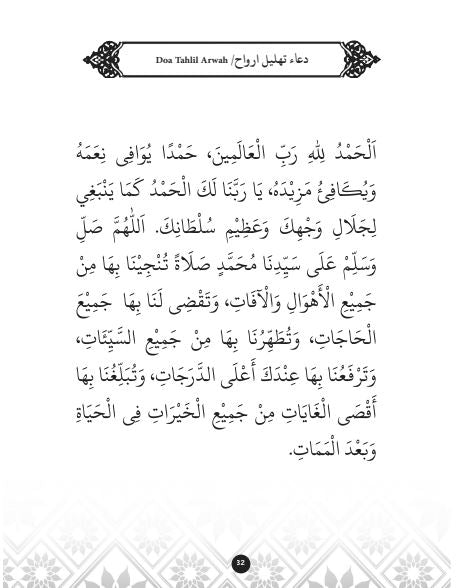 دعاء تهليل ارواح/ Doa Tahlil Arwah
اَلْحَمْدُ لِلهِ رَبِّ الْعَالَمِينَ، حَمْدًا يُوَافِى نِعَمَهُ
وَيُكَافِئُ مَزِيْدَهُ، يَا رَبَّنَا لَكَ الْحَمْدُ كَمَا يَنْبَغِي
لِجَلَالِ وَجْهِكَ وَعَظِيْمِ سُلْطَانِكَ. اَللّٰهُمَّ صَلِّ
وَسَلِّمْ عَلَى سَيِّدِنَا مُحَمَّدٍ صَلَاةً تُنْجِيْنَا بِهَا مِنْ
جَمِيْعِ الْأَهْوَالِ وَالْآفَاتِ، وَتَقْضِى لَنَا بِهَا جَمِيْعَ
الْحَاجَاتِ، وَتُطَهِّرُنَا بِهَا مِنْ جَمِيْعِ السَّيِّئَاتِ،
وَتَرْفَعُنَا بِهَا عِنْدَكَ أَعْلَى الدَّرَجَاتِ، وَتُبَلِّغُنَا بِهَا
أَقْصَى الْغَايَاتِ مِنْ جَمِيْعِ الْخَيْرَاتِ فِى الْحَيَاةِ
وَبَعْدَ الْمَمَاتِ.
32